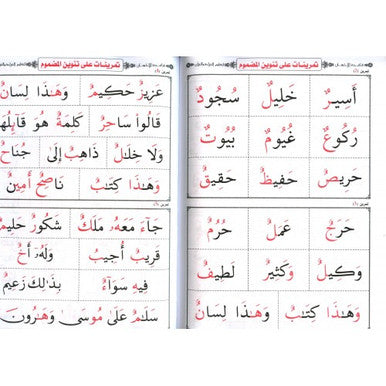 تمرينات على تنوين المضموم
أَسِيرٌ خَلِيلٌ سُجُودٌ
رُكُوعٌ غُيُومٌ بُيُوتٌ
حَرِيصٌ حَفِيظٌ حَقِيقٌ
حَرَجٌ عَمَلٌ حُرُمٌ
وَكِيلٌ وَكَثِيرٌ لَطِيفٌ
وَهَـٰذَا كِتَـٰبٌ وَهَـٰذَا لِسَانٌ
تمرينات على تنوين المضموم
عَزِيزٌ حَكِيمٌ وَهَـٰذَا لِسَانٌ
قَالُوا۟ سَاحِرٌ كَلِمَةٌ هُوَ قَآئِلُهَا
وَلَا خِلَـٰلٌ ذَاهِبٌ إِلَىٰ جُنَاحٌ
وَهَـٰذَا كِتَـٰبٌ نَاصِحٌ أَمِينٌ
جَآءَ مَعَهُۥ مَلَكٌ شَكُورٌ حَلِيمٌ
قَرِيبٌ أُجِيبُ وَلَهُۥٓ أَخٌ
فِيهِ سَوَآءٌ بِذَٰلِكَ زَعِيمٌ
سَلَـٰمٌ عَلَىٰ مُوسَىٰ وَهَـٰرُونَ